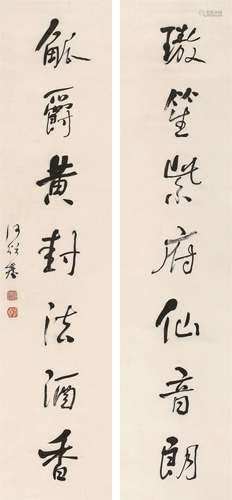 璈笙紫府仙音朗
觚爵黄封法酒香
何绍基